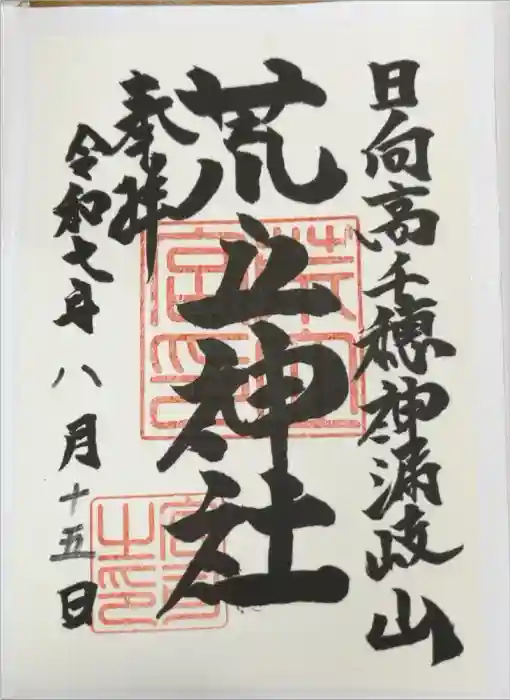 日向高千穂神漏岐山
荒立神社
奉拝
令和七年 八月十五日